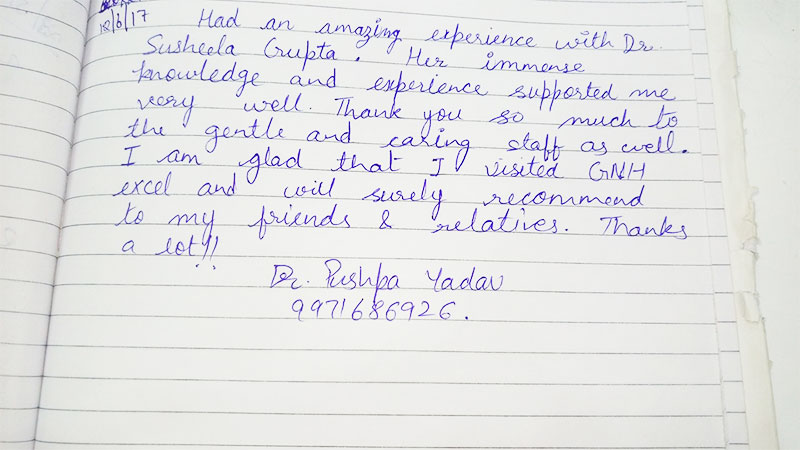 12/6/17 Had an amazing experience with Dr.
Susheela Gupta. Her immense
knowledge and experience supported me
very well. Thank you so much to
the gentle and caring staff as well.
I am glad that I visited GNH
excel and will surely recommend
to my friends & relatives. Thanks
a lot!!
Dr. Pushpa Yadav
9971686926.